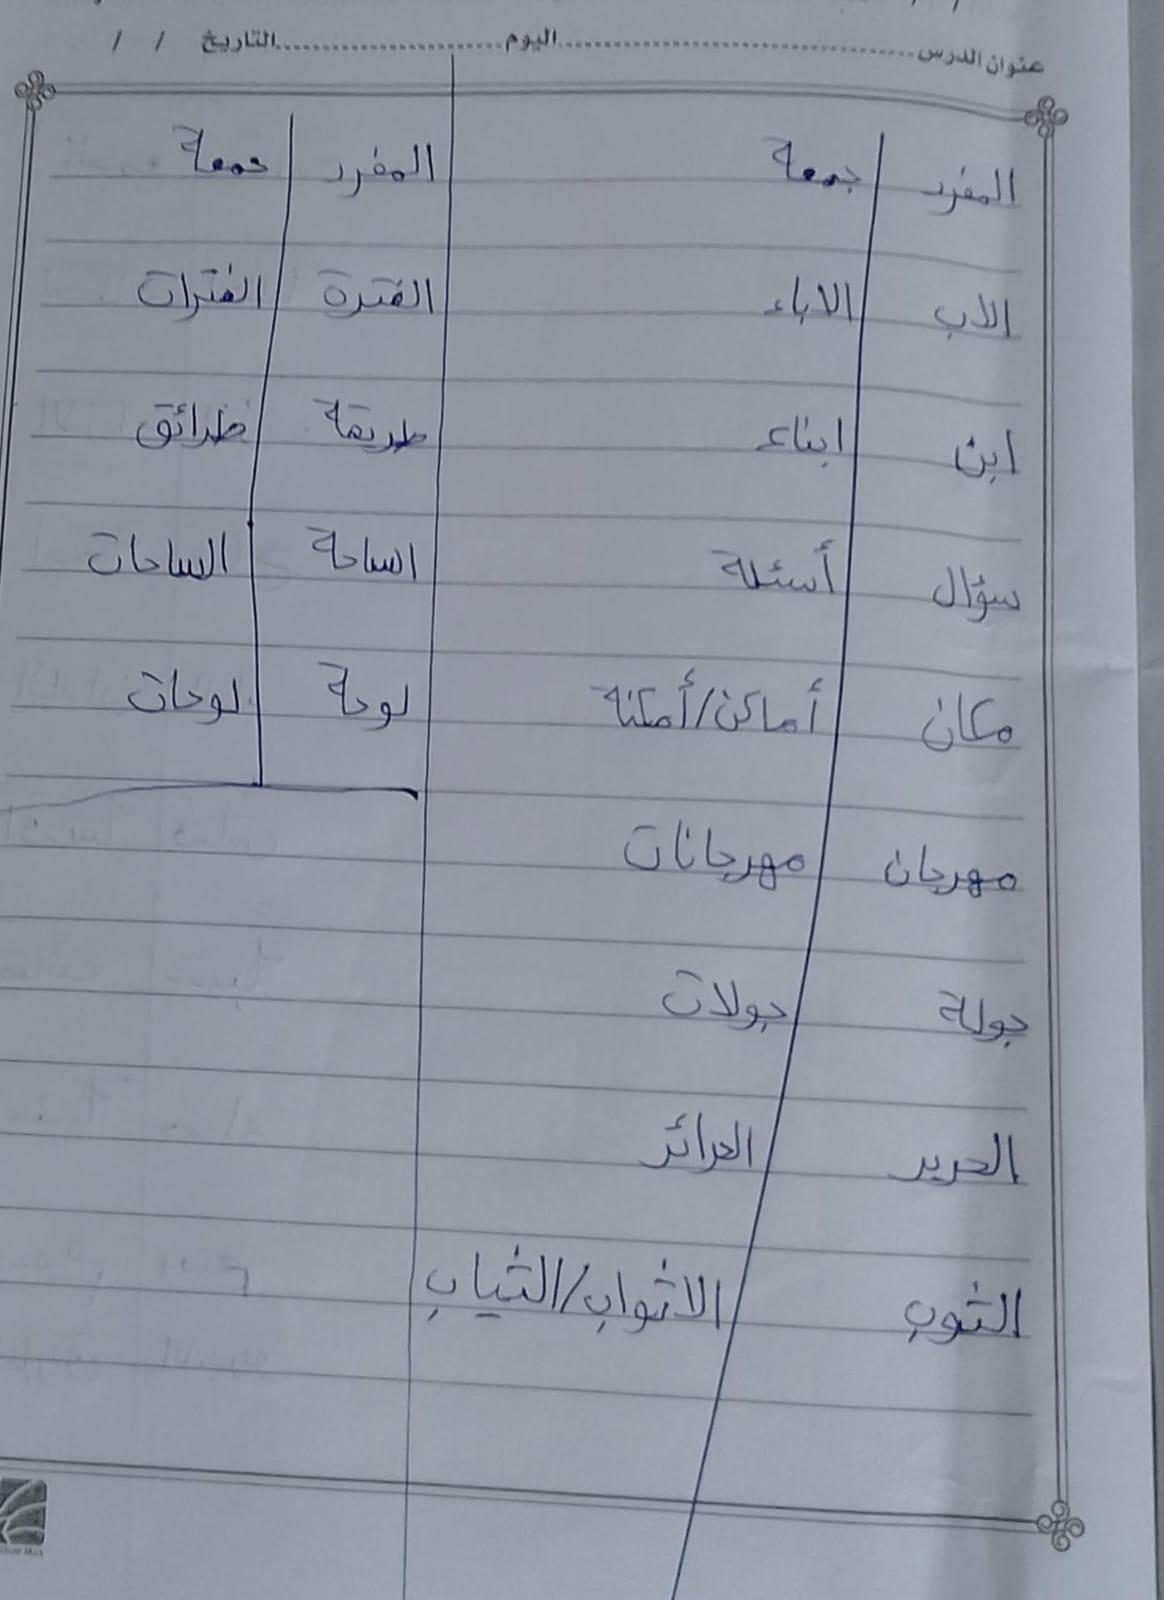 عنوان الدرس.......................اليوم.......................التاريخ / /
المفرد جمعة المفرد جمعة
الاب الاباء الفترة الفترات
ابن ابناء طريقة طرائق
سؤال أسئلة الساحة الساحات
مكان أماكن/أمكنة لوحة لوحات
مهرجان مهرجانات
جولة جولات
الحرير الحرائر
الثوب الاثواب/الثياب